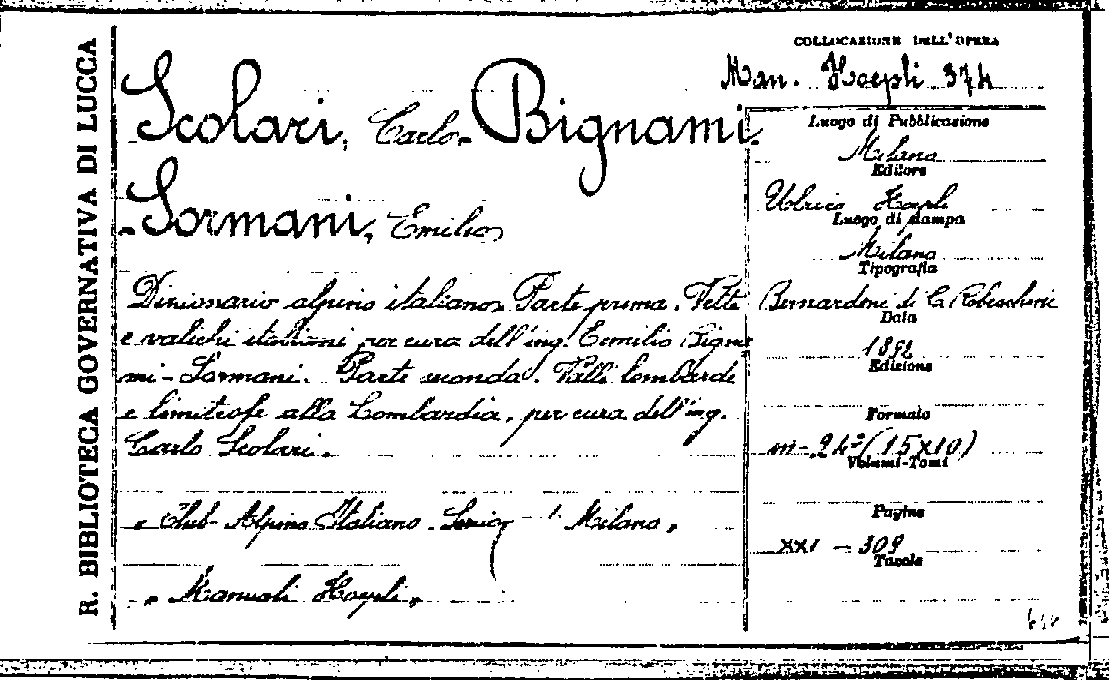 R. BIBLIOTECA GOVERNATIVA DI LUCCA
COLLOCAZIONE DELL'OPERA
Man. Hoepli 374
Scolari, Carlo - Bignami
- Sormani, Emilio
Dizionario alpino italiano. Parte prima. Vette
e valichi italiani per cura dell'ing. Emilio Bigna
mi - Sormani. Parte seconda. Valli lombarde
e limitrofe alla Lombardia, per cura dell'ing.
Carlo Scolari.
" Club Alpino Italiano. Milano "
" Manuali Hoepli "
Luogo di Pubblicazione
Milano
Editore
Ulrico Hoepli
Luogo di stampa
Milano
Tipografia
Bernardoni di C. Rebeschini
Data
1892
Edizione
Formato
m - 24° (15x10)
Volumi-Tomi
Pagine
XXI - 309
Tavole